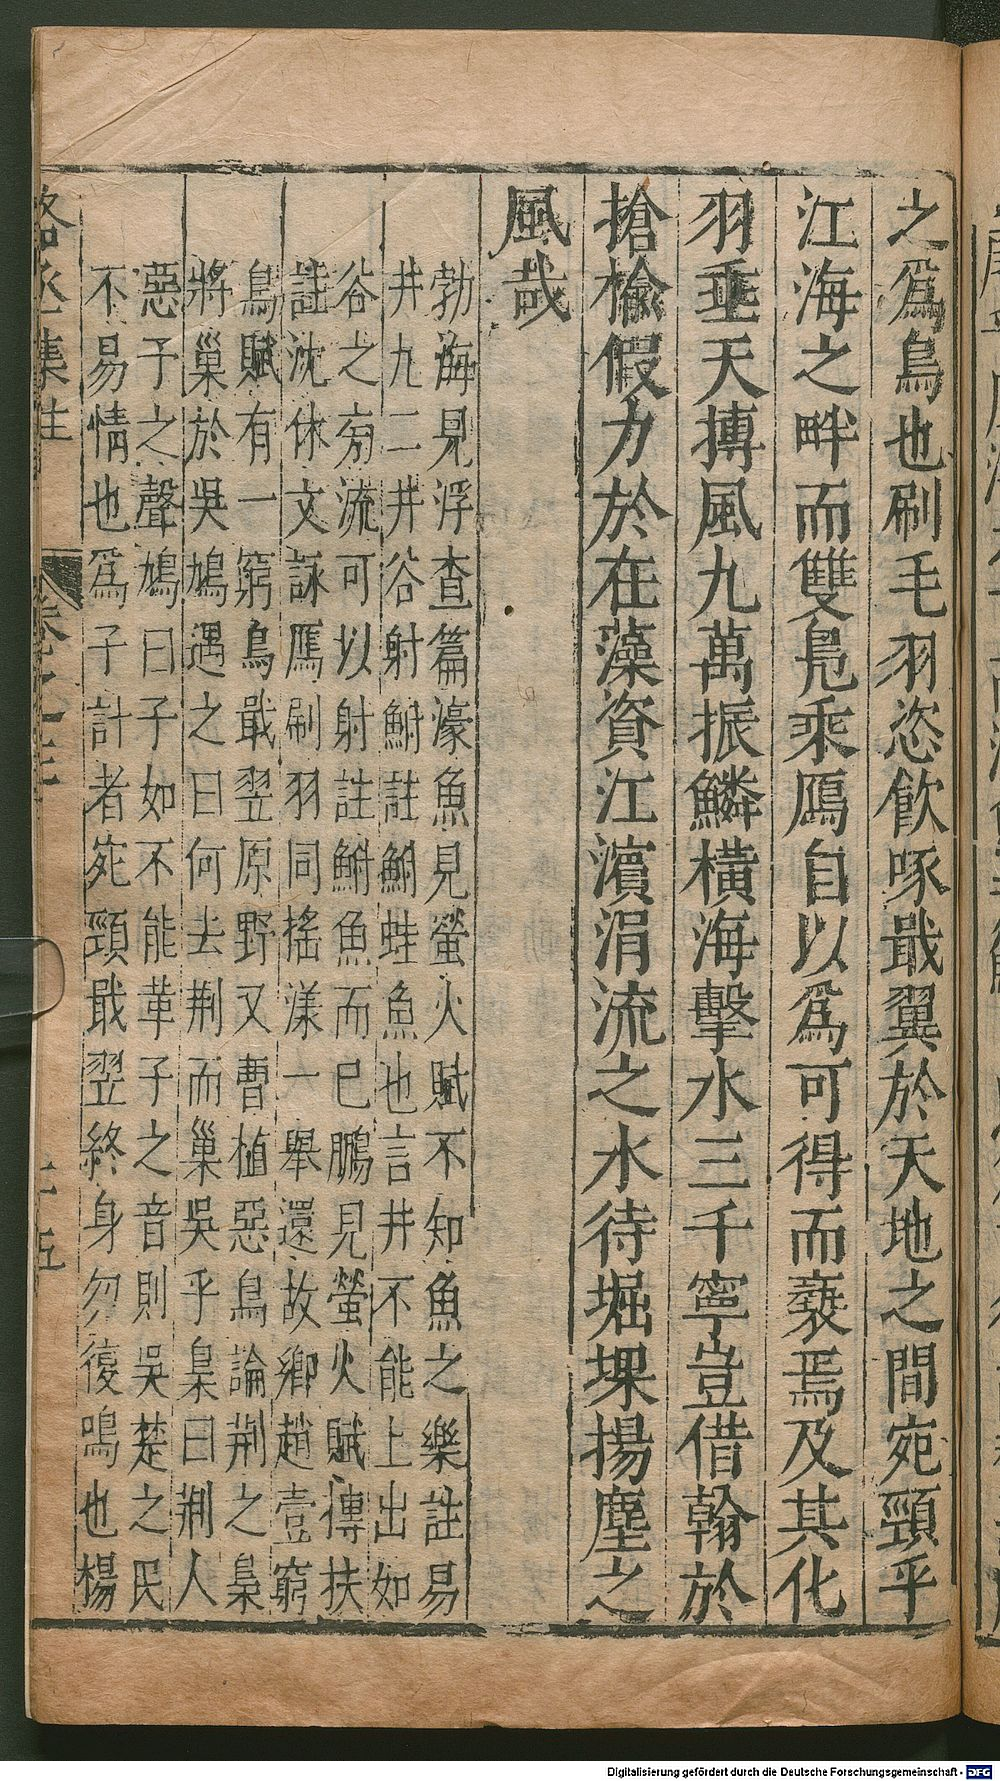 之爲鳥也刷毛羽恣飲啄戢翼於天地之間宛頸乎
江海之畔而雙鳧乘鴈自以爲可得而褻焉及其化
羽垂天摶風九萬振鱗橫海擊水三千寧豈借翰於
搶楡假力於在藻資江濵涓流之水待堀堁揚塵之
風哉
勃海見浮查篇濠魚見螢火賦不知魚之樂註易
井九二井谷射鮒註鮒蛙魚也言井不能上出如
谷之㫄流可以射註鮒魚而已鵬見螢火賦傳扶
註沈休文詠鴈刷羽同搖漾一舉還故卿趙壹窮
鳥賦有一窮鳥戢翌原野又曹植惡鳥論荆之梟
將巢於吳鳩遇之曰何去荆而巢吳乎梟曰荆人
惡予之聲鳩曰子如不能革子之音則吳楚之民
不易情也爲子計者宛頸戢翌終身勿復鳴也楊
集註
卷之
Digitalisierung gefördert durch die Deutsche Forschungsgemeinschaft - DFG